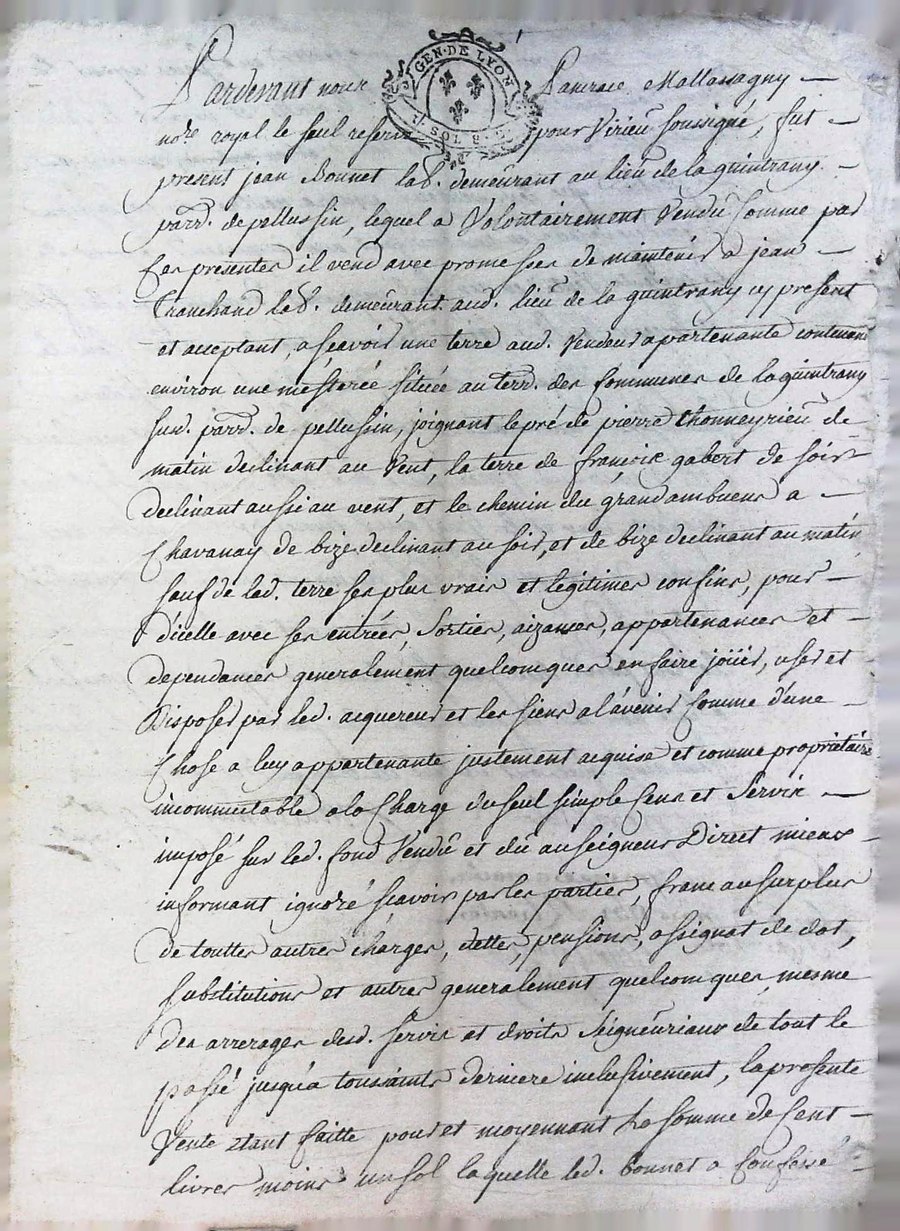 GEN. DE LYON
SOL 8
Pardevant nous Mallassagny
no.re royal le seul reservé pour Virieu soussigné, fut
present jean Bonnet lab.r demeurant au lieu de la guintrany
parr. de pellussin, lequel a Volontairement Vendu Comme par
Ces presentes il vend avec promesses de maintenir a jean
Tranchand lab.r demeurant aud. lieu de la guintrany cy present
et acceptant, a scavoir une terre aud. Vendeur apartenante contenant
environ une mesterée située au terr. des Communes de la guintrany
sus. parr. de pellussin, joignant le pré de pierre thonneyrieu de
matin declinant au Vent, la terre de françois gabert de soir
declinant aussi au vent, et le chemin du grand ambuens a
Chavanay de bize declinant au soir, et de bize declinant au matin
sauf de led. terre ses plus vrais et legitimes confins, pour
dicelle avec ses entrées, sorties, aizances, appartenances et
dependances generalement quelcomques en faire joüir, user et
Disposer par led. acquereur et les siens a l'avenir Comme d'une
Chose a luy appartenante justement acquise et comme proprietaire
incommutable a la Charge du seul simple Cens et Servis
imposé sur led. fond Vendû et dû au seigneur Direct mieux
informant ignoré scavoir par les parties, franc au surplus
de touttes autres charges, dettes, pensions, assignat de dot,
substitutions et autres generalement quelcomques, mesme
des arrerages desd. servis et droits Seigneuriaux de tout le
passé jusqu'a toussaints derniere inclusivement, la presente
Vente etant faitte pour et moyennant La somme de Cent
livres moins un sol laquelle led. Bonnet a Confessé